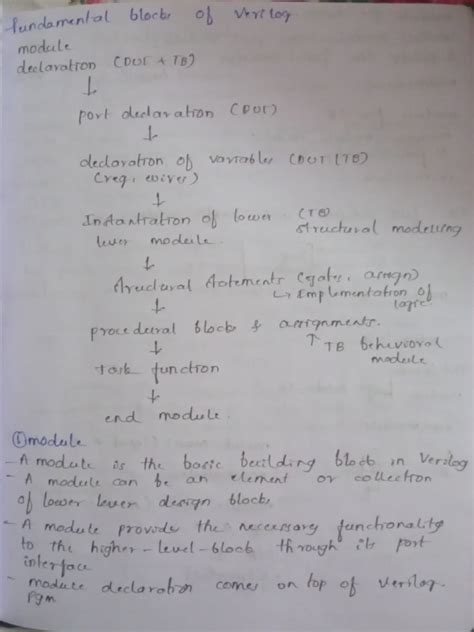 fundamental blocks of verilog
module
declaration (DUT + TB)
↓
port declaration (DUT)
↓
declaration of variables (DUT / TB)
(reg, wires)
↓
Instantiation of lower (TB)
lever module. structural modelling
↓
structural statements (gates, assign)
↳ Implementation of
logic
↓
procedural blocks & assignments.
↓ ↑ TB behavioral
module
Task function
↓
end module.
① module
- A module is the basic building block in Verilog
- A module can be an element or collection
of lower lever design blocks
- A module provide the necessary functionality
to the higher-level-block through its port
interface
- module declaration comes on top of verilog
pgm